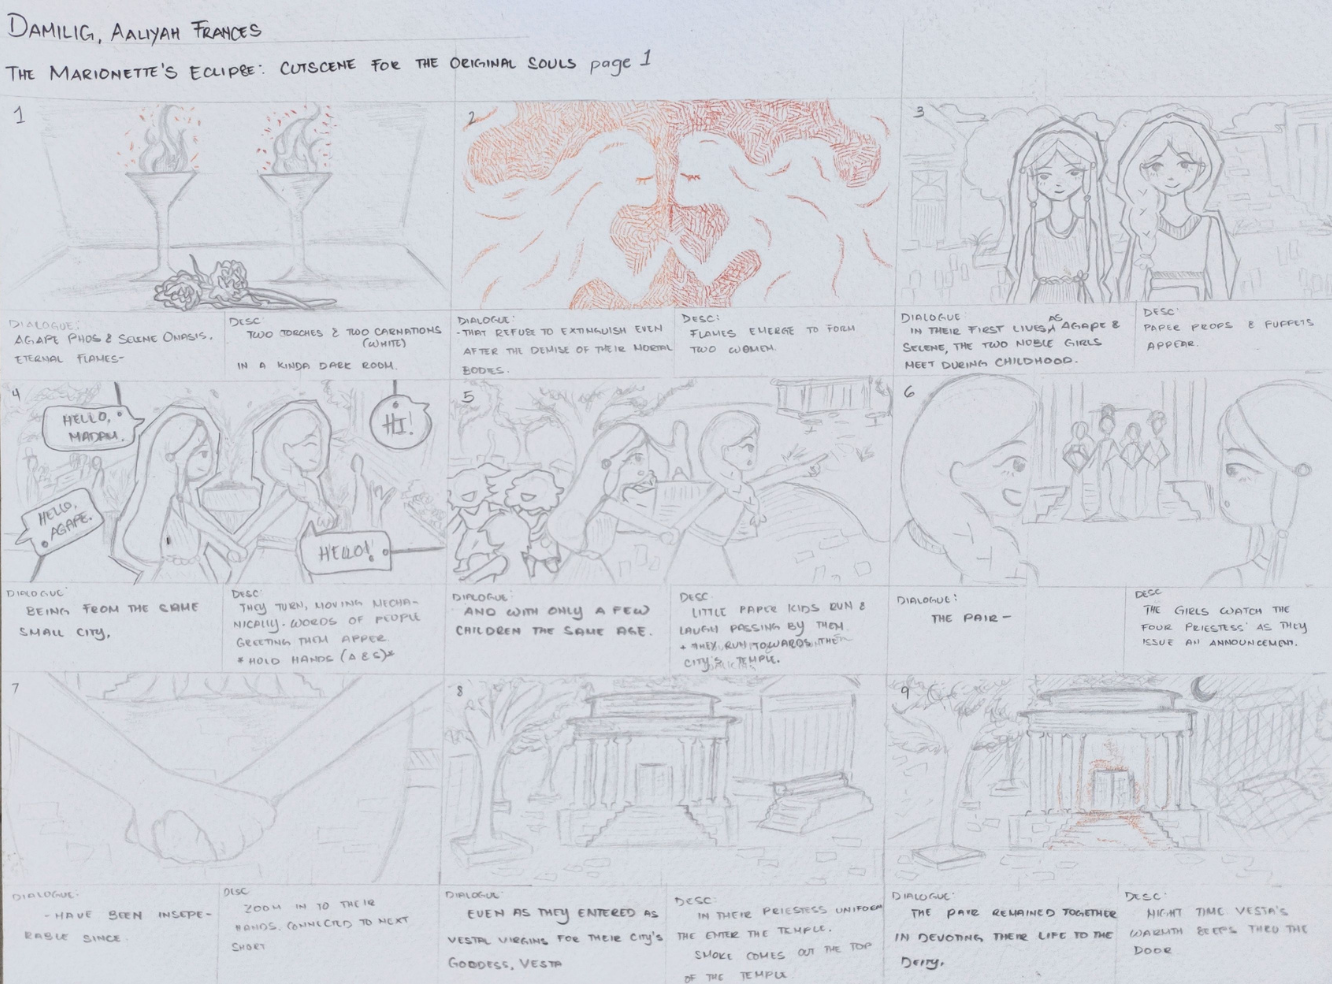 DAMILIG, AALIYAH FRANCES
THE MARIONETTE'S ECLIPSE: CUTSCENE FOR THE ORIGINAL SOULS page 1
1
DIALOGUE:
AGAPE PHOS & SELENE ONASIS.
ETERNAL FLAMES-
DESC:
TWO TORCHES & TWO CARNATIONS
(WHITE)
IN A KINDA DARK ROOM.
2
DIALOGUE:
-THAT REFUSE TO EXTINGUISH EVEN
AFTER THE DEMISE OF THEIR MORTAL
BODIES.
DESC:
FLAMES EMERGE TO FORM
TWO WOMEN.
3
DIALOGUE
AS
IN THEIR FIRST LIVES, AGAPE &
SELENE, THE TWO NOBLE GIRLS
MEET DURING CHILDHOOD.
DESC:
PAPER PROPS & PUPPETS
APPEAR.
4
HELLO,
MADAM.
HI!
HELLO,
AGAPE.
HELLO!
DIALOGUE:
BEING FROM THE SAME
SMALL CITY,
DESC
THEY TURN, MOVING MECHA-
NICALLY. WORDS OF PEOPLE
GREETING THEM APPER
*HOLD HANDS (A & S)*
5
DIALOGUE:
AND WITH ONLY A FEW
CHILDREN THE SAME AGE.
DESC:
LITTLE PAPER KIDS RUN &
LAUGH PASSING BY THEM.
+ THEY RUN TOWARDS THEIR
CITY'S TEMPLE.
6
DIALOGUE:
THE PAIR-
DESC
THE GIRLS WATCH THE
FOUR PRIESTESS' AS THEY
ISSUE AN ANNOUNCEMENT.
7
DIALOGUE:
-HAVE BEEN INSEPE-
RABLE SINCE.
DESC
ZOOM IN TO THEIR
HANDS. CONNECTED TO NEXT
SHOT
8
DIALOGUE:
EVEN AS THEY ENTERED AS
VESTAL VIRGINS FOR THEIR CITY'S
GODDESS, VESTA
DESC:
IN THEIR PRIESTESS UNIFORM
THE ENTER THE TEMPLE.
SMOKE COMES OUT THE TOP
OF THE TEMPLE
9
DIALOGUE:
THE PAIR REMAINED TOGETHER
IN DEVOTING THEIR LIFE TO THE
DEITY.
DESC:
NIGHT TIME. VESTA'S
WARMTH SEEPS THRU THE
DOOR